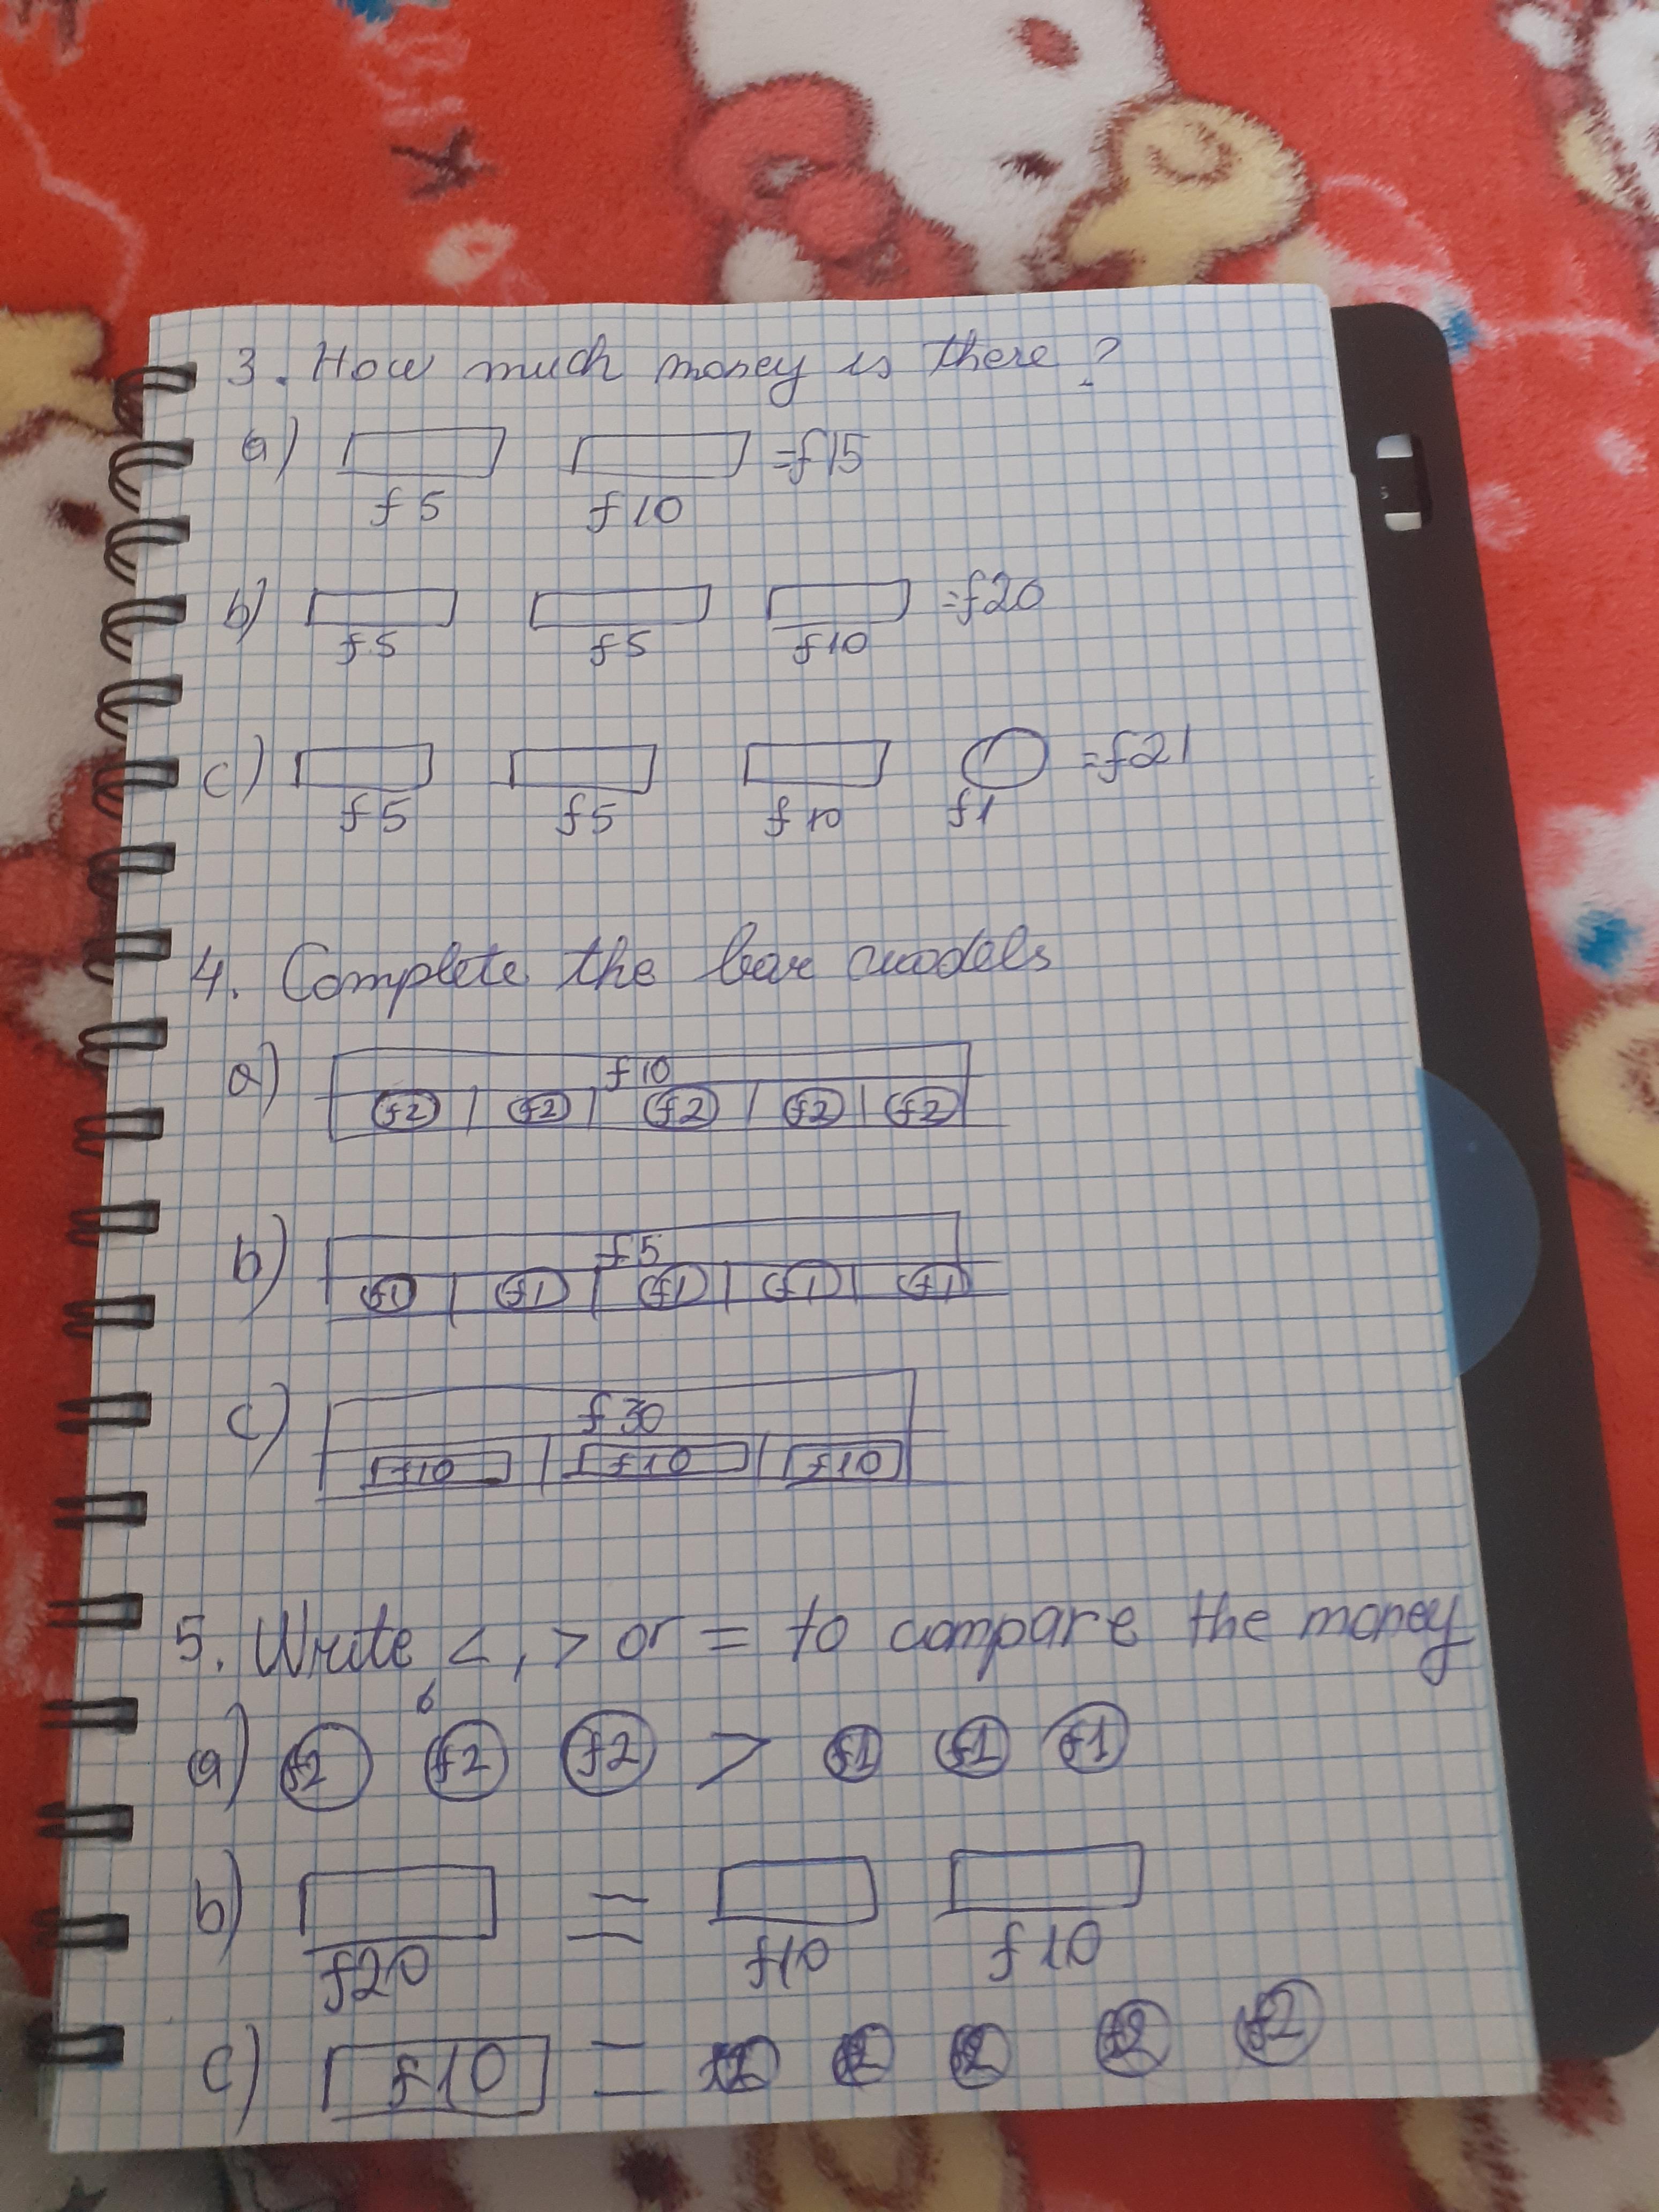 3. How much money is there?
a) £5 £10 =£15
b) £5 £5 £10 =£20
c) £5 £5 £10 £1 =£21
4. Complete the bar models
a) £10
£2 £2 £2 £2 £2
b) £5
£1 £1 £1 £1 £1
c) £30
£10 £10 £10
5. Write <, > or = to compare the money
6
a) £2 £2 £2 > £1 £1 £1
b) £20 = £10 £10
c) £10 = £2 £2 £2 £2 £2